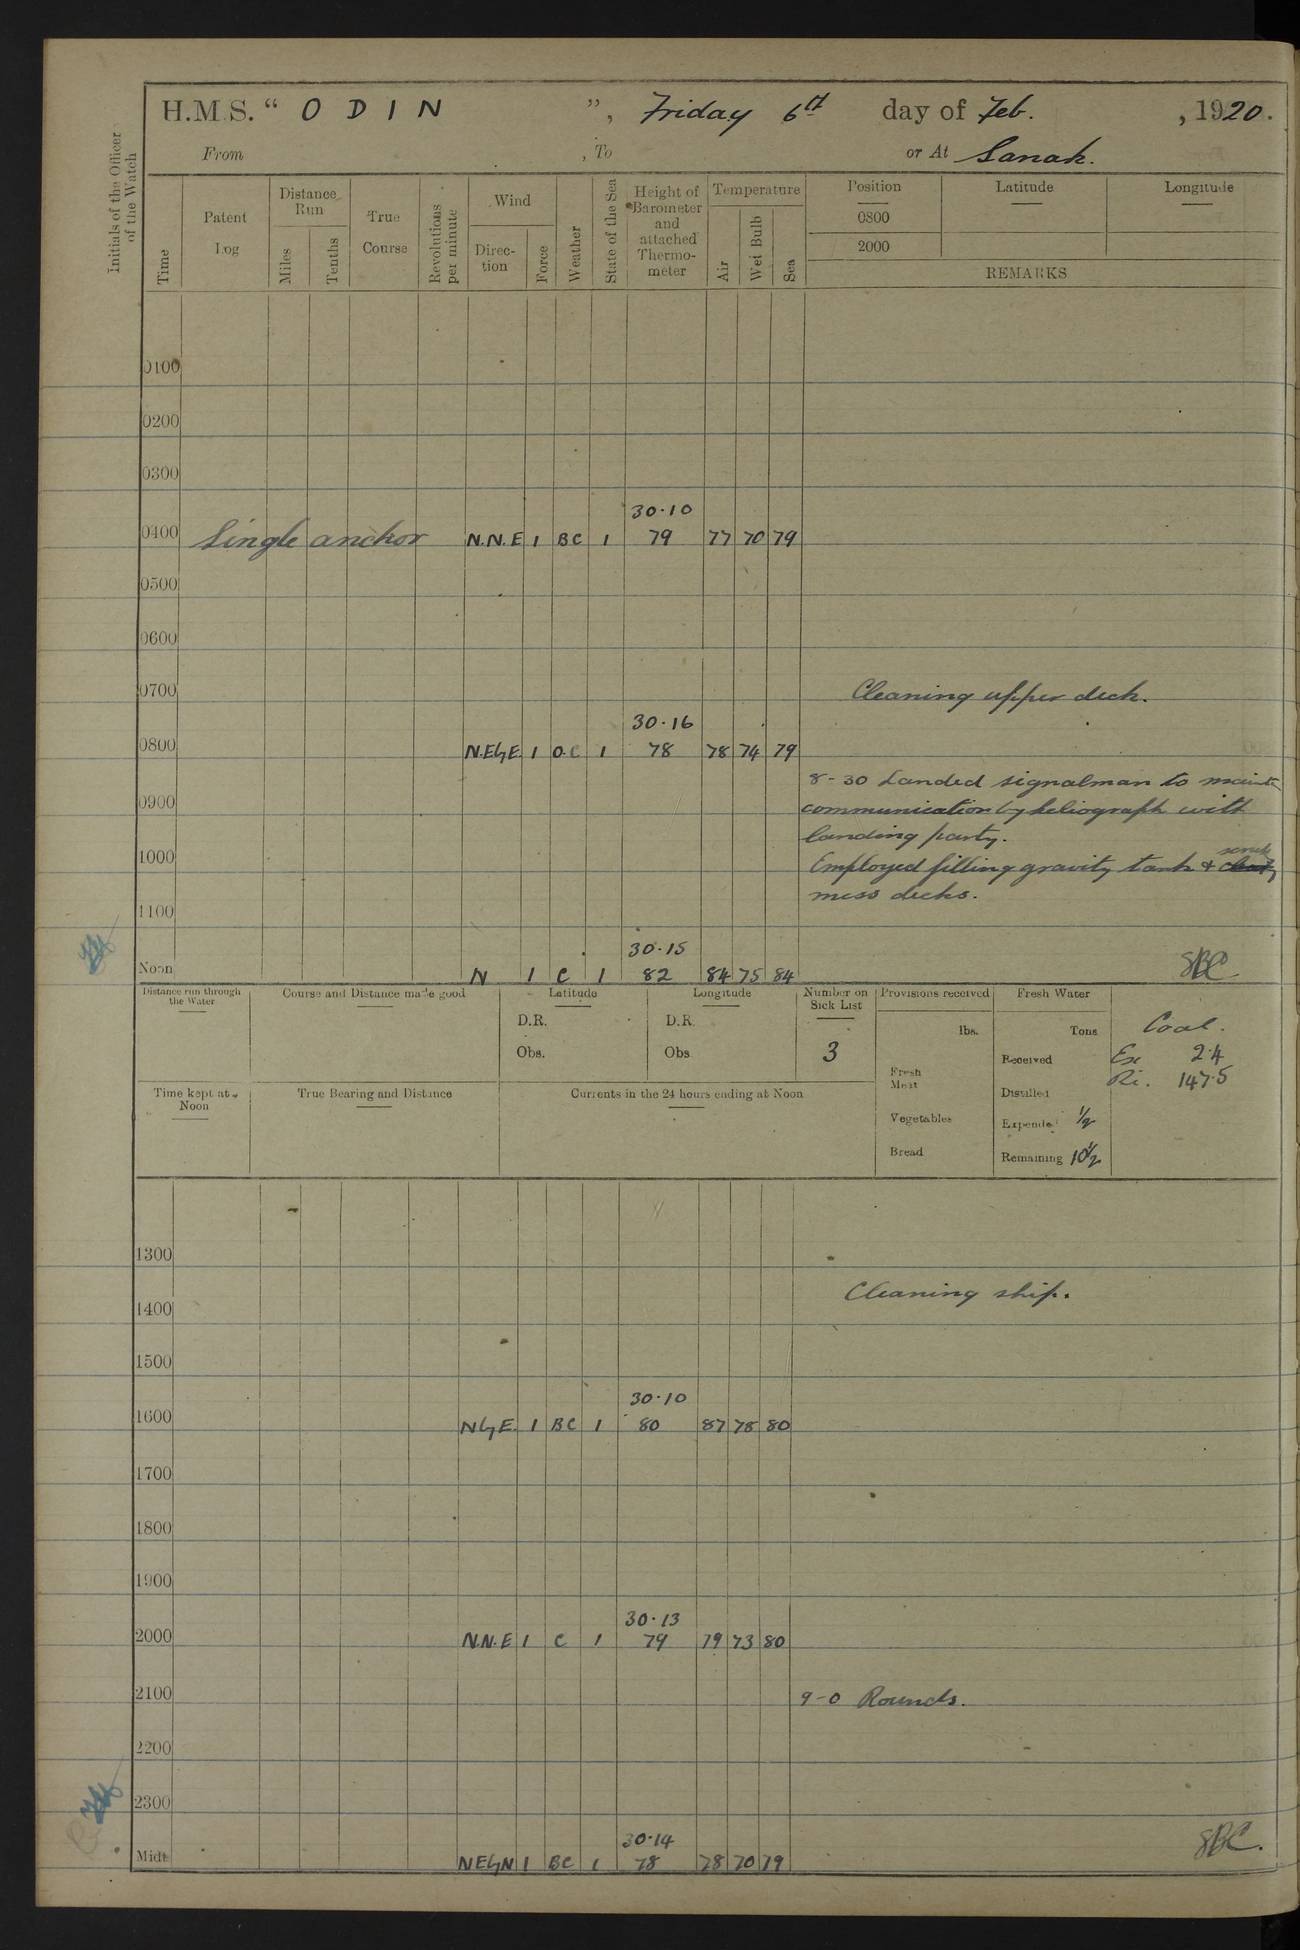 H.M.S. “ O D I N ”, Friday 6th day of Feb. , 1920.
From , To or At Sanak.
Initials of the Officer of the Watch
Time
Patent Log
Distance Run
Miles
Tenths
True Course
Revolutions per minute
Wind
Direc-tion
Force
Weather
State of the Sea
Height of Barometer and attached Thermo-meter
Temperature
Air
Wet Bulb
Sea
Position Latitude Longitude
0800
2000
REMARKS
0100
0200
0300
30.10
0400 Single anchor N.N.E 1 BC 1 79 77 70 79
0500
0600
0700 Cleaning upper deck.
30.16
0800 N.EbyE. 1 O.C 1 78 78 74 79
8-30 Landed signalman to
0900 communication by heliograph with
landing party.
1000 Employed filling gravity tank &
mess decks.
1100
30.15
Noon N 1 C 1 82 84 75 84 SBC
Distance run through the Water
Course and Distance made good
Latitude
D.R.
Obs.
Longitude
D.R.
Obs
Number on Sick List
3
Provisions received
lbs.
Fresh Meat
Vegetables
Bread
Fresh Water
Tons
Received
Distilled
Expended 1/2
Remaining 10 1/2
Coal.
Ex 2.4
Re. 147.5
Time kept at Noon
True Bearing and Distance
Currents in the 24 hours ending at Noon
1300
1400 Cleaning ship.
1500
30.10
1600 NbyE. 1 BC 1 80 87 78 80
1700
1800
1900
30.13
2000 N.N.E 1 C 1 79 79 73 80
2100 9-0 Rounds.
2200
2300
30.14
Midt NEbyN 1 BC 1 78 78 70 79 SBC.